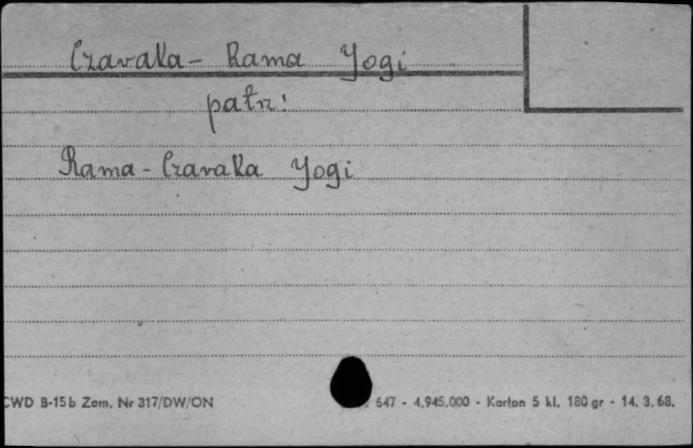 Czavaka - Rama Yogi
patrz:
Rama - Czavaka Yogi
CWD B-15b Zam. Nr 317/DW/ON 647 - 4.945.000 - Karton 5 kl. 180 gr - 14. 3. 68.